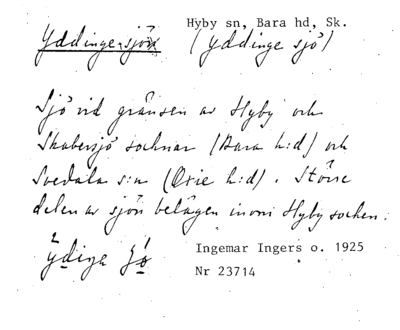 Hyby sn, Bara hd, Sk.
Yddingesjön (Yddinge sjö)
Sjö vid gränsen av Hyby och
Skabersjö socknar (Bara h:d) och
Svedala s:n (Oxie h:d). Större
delen av sjön belägen inom Hyby socken.
Ingemar Ingers o. 1925
Nr 23714